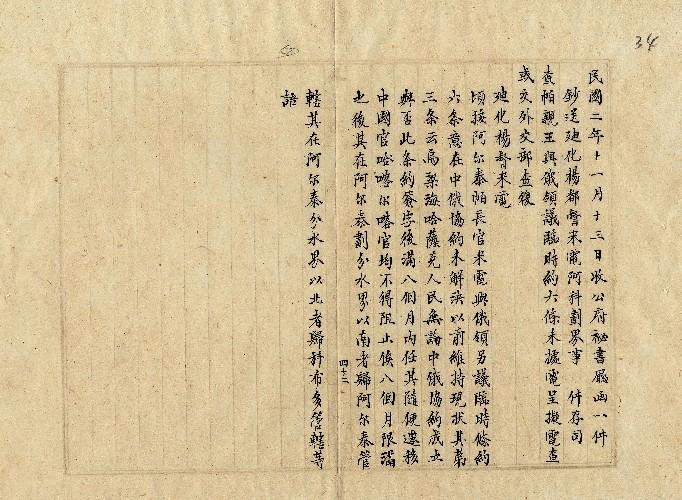 34
民國二年十一月十三日收公府祕書廳函一件
鈔送廸化楊都督來電阿科劃界事 件存司
查帕親王與俄領議臨時約六條未據電呈擬電查
或交外交部查復
廸化楊督來電
頃接阿尔泰帕長官來電與俄領另議臨時條約
六条意在中俄協約未解決以前維持現狀其第
三条云烏梁海哈薩克人民無論中俄協約成立
與否此条約簽字後滿八個月內任其隨便遷移
中國官哈喀尔喀官均不得阻止俟八個月限滿
之後其在阿尔泰劃分水界以南者歸阿尔泰管
四十二
轄其在阿尔泰分水界以北者歸科布多管轄等
語